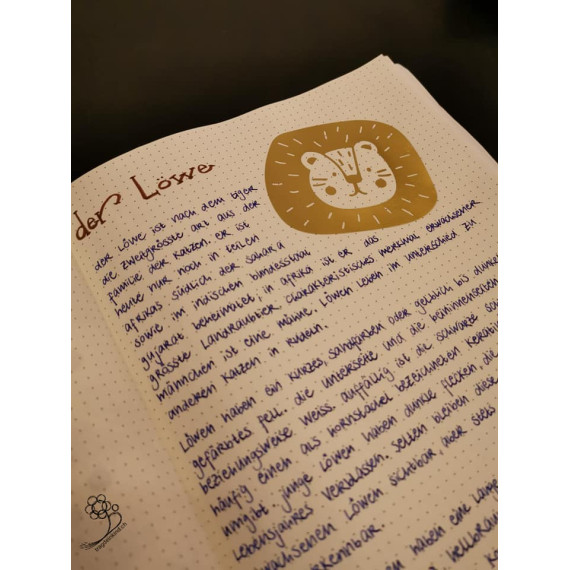 der Löwe
der Löwe ist nach dem tiger
die zweitgrösste art aus der
familie der katzen. er ist
heute nur noch in teilen
afrikas südlich der sahara
sowie im indischen bundesstaat
gujarat beheimatet; in afrika ist er das
grösste Landraubtier. charakteristisches merkmal erwachsener
männchen ist eine mähne. Löwen leben im unterschied zu
anderen katzen in rudeln.
Löwen haben ein kurzes, sandfarben oder gelblich bis dunkel
gefärbtes fell. die unterseite und die beininnenseiten
beziehungsweise weiss. auffällig ist die schwarze
häufig einen als hornstachel bezeichneten
umgibt. junge Löwen haben dunkle flecken, die
Lebensjahres verblassen. selten bleiben diese
Löwen sichtbar, aber stets
haben eine